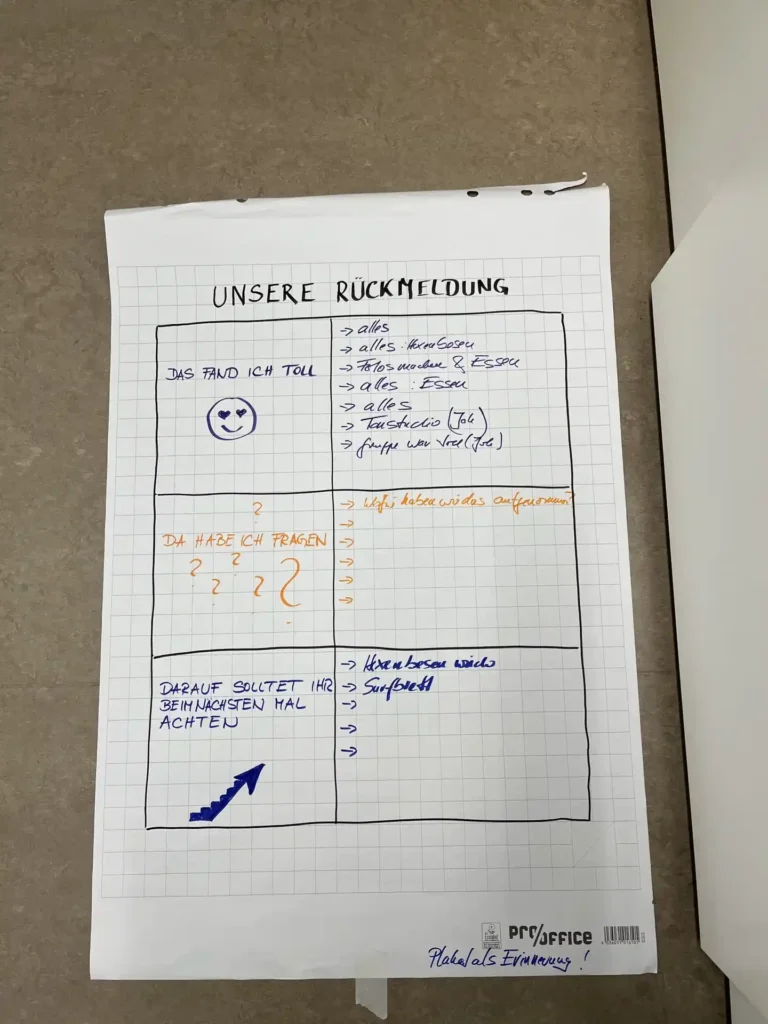 UNSERE RÜCKMELDUNG
DAS FAND ICH TOLL
→ alles
→ alles : Hexenbesen
→ Fotos machen & Essen
→ alles : Essen
→ alles
→ Tonstudio (Joh)
→ Gruppe war toll (Joh)
?
DA HABE ICH FRAGEN
? ? ? ? ?
→ Wofür haben wir das aufgenommen?
→
→
→
→
→
DARAUF SOLLTET IHR
BEIM NÄCHSTEN MAL
ACHTEN
→ Hexenbesen
→ Surfbrett
→
→
→
PRO/OFFICE
Plakat als Erinnerung !